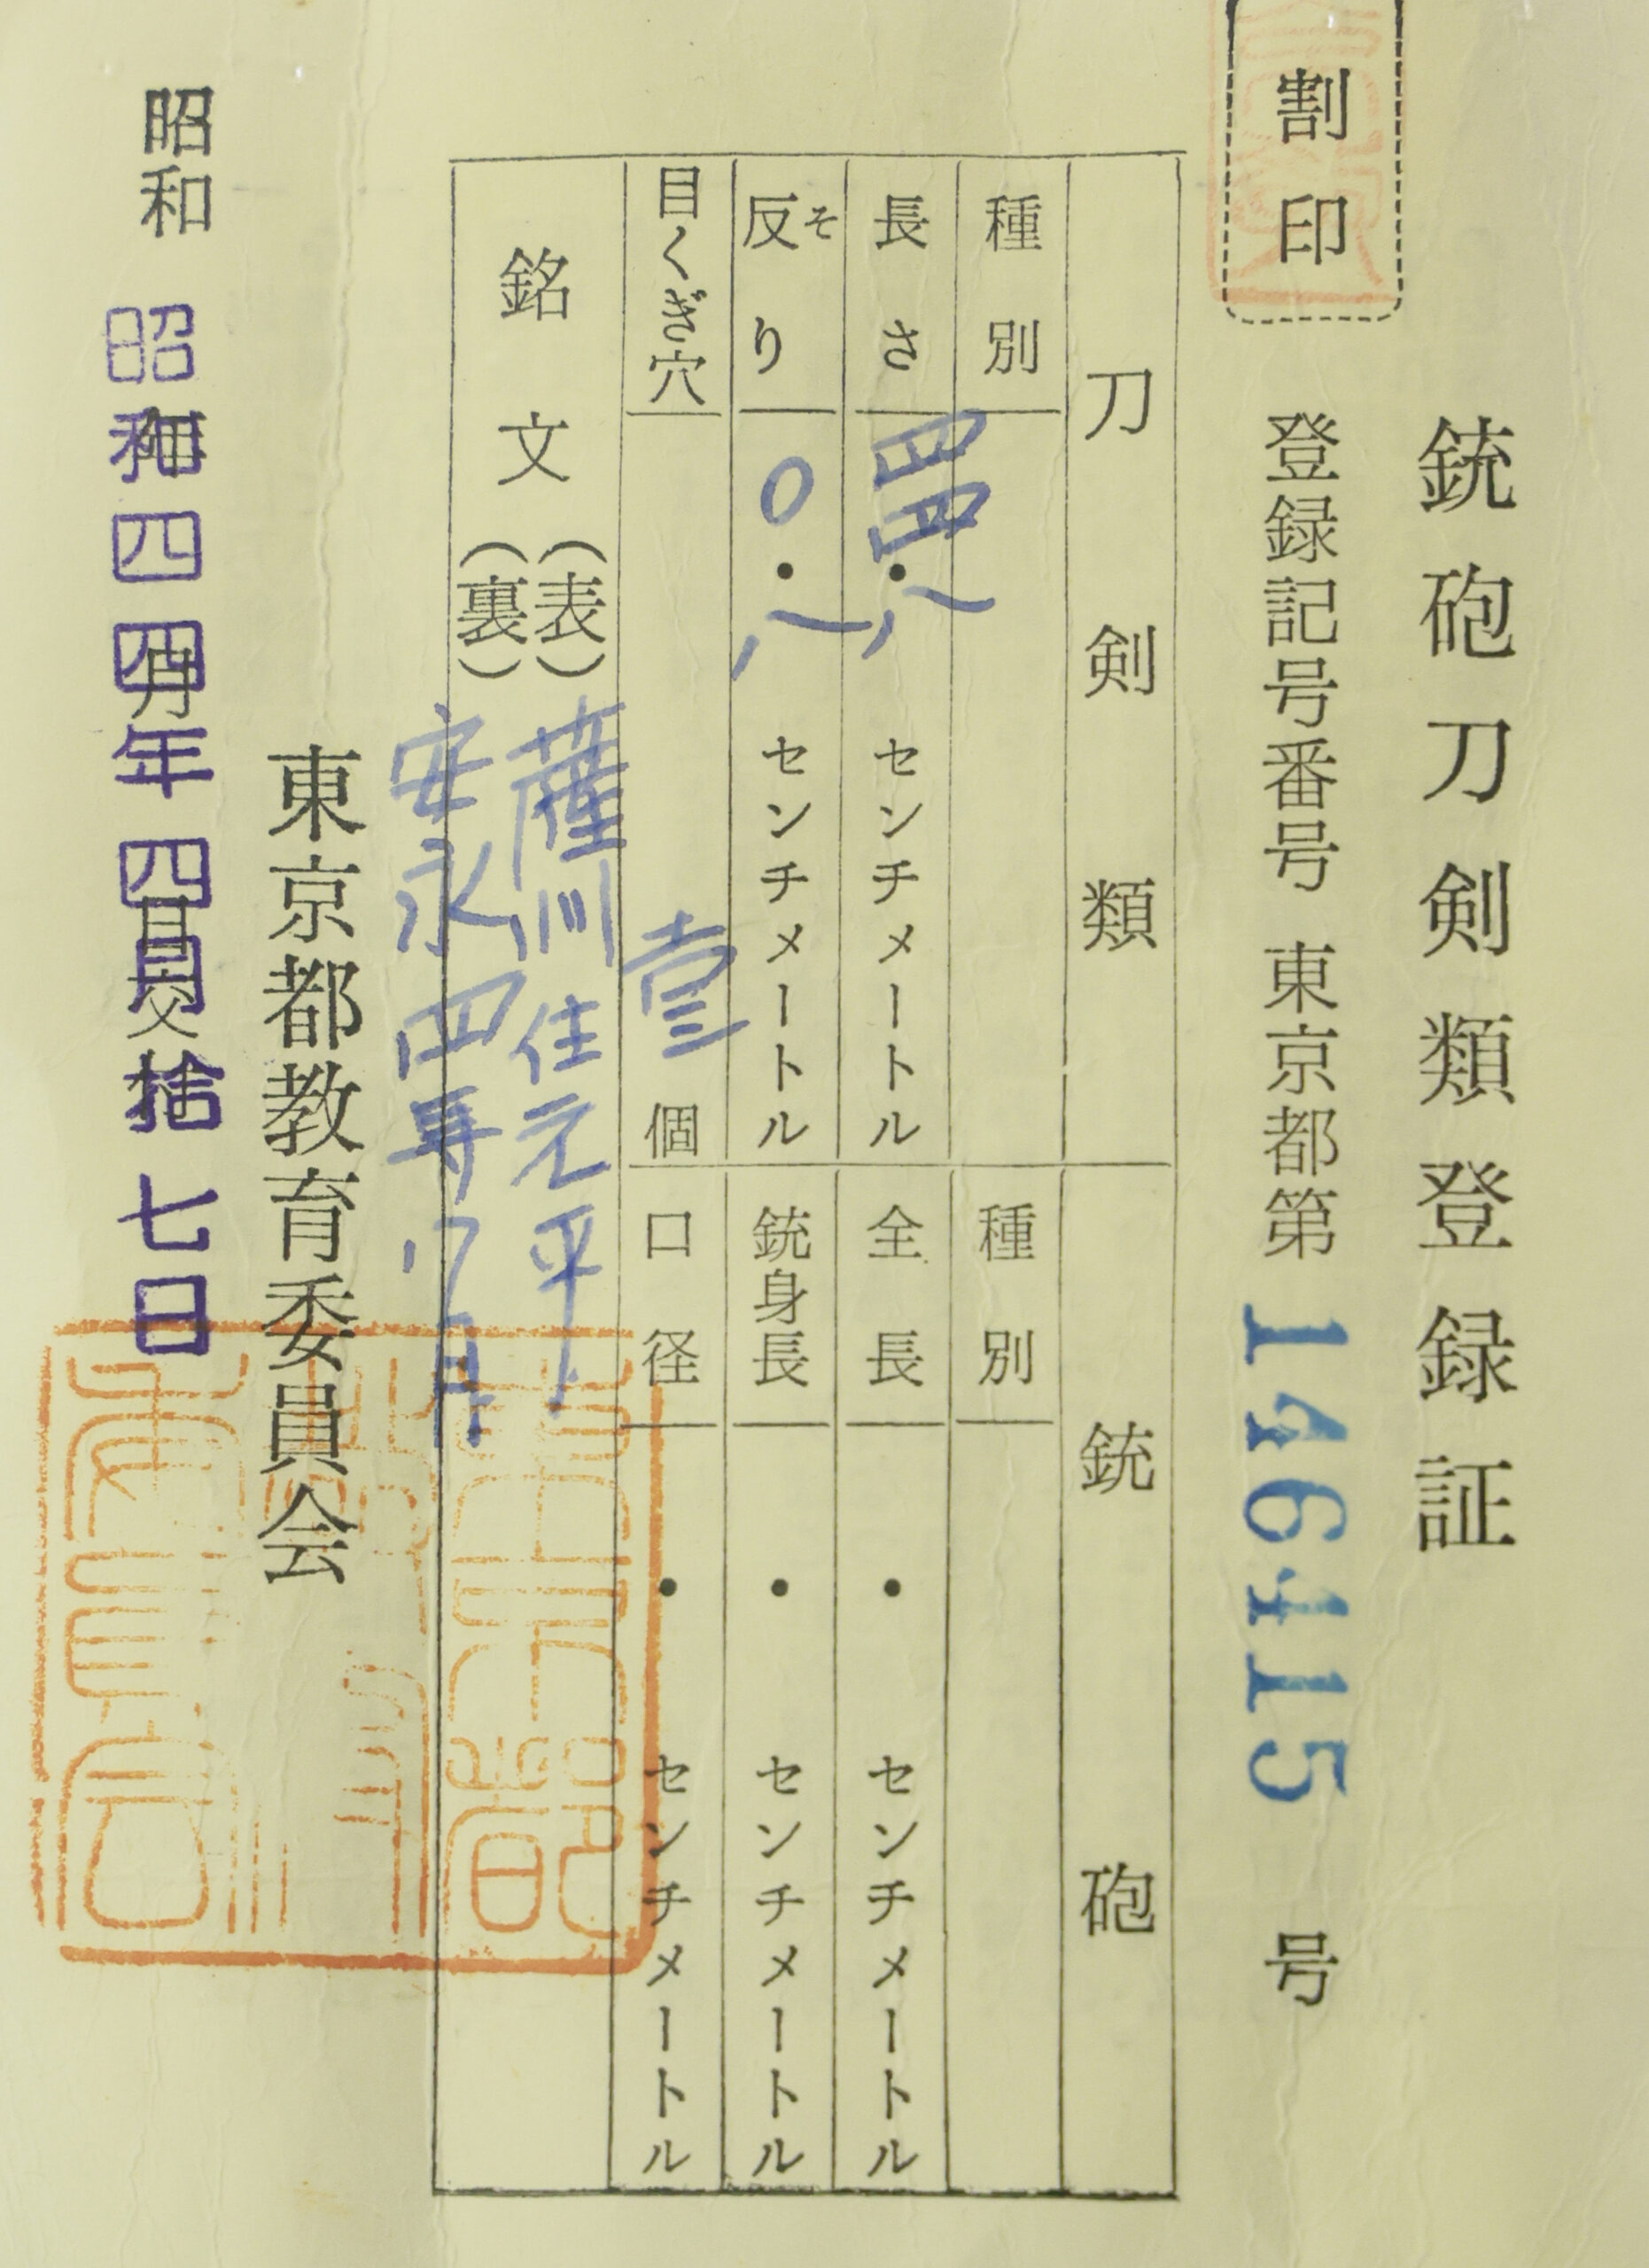 銃砲刀剣類登録証
割印
登録記号番号 東京都第 146415 号
刀剣類
種別
長さ 四四・八 センチメートル
反り 〇・八 センチメートル
そ
目くぎ穴 壹 個
銘文
(表) 薩州住元平
(裏) 安永四年八月
銃砲
種別
全長 ・ センチメートル
銃身長 ・ センチメートル
口径 ・ センチメートル
東京都教育委員会
昭和
昭和四四年四月拾七日